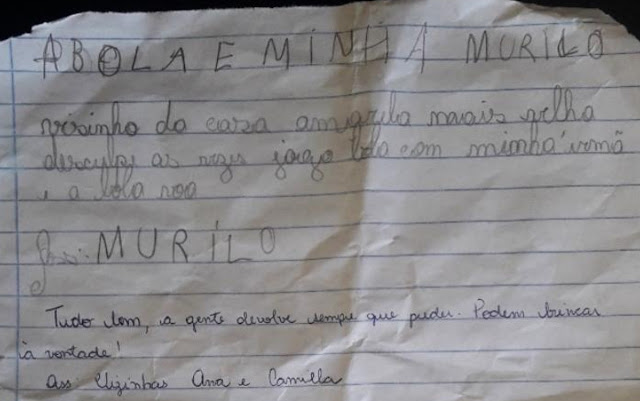 A BOLA E MINHA MURILO
visinho da casa amarela maais velho
desculpe as vezes jogo bola com minha irmã
e a bola voa
Ass: MURILO
Tudo bem, a gente devolve sempre que puder. Podem brincar
à vontade!
Ass: Vizinhas Ana e Camilla